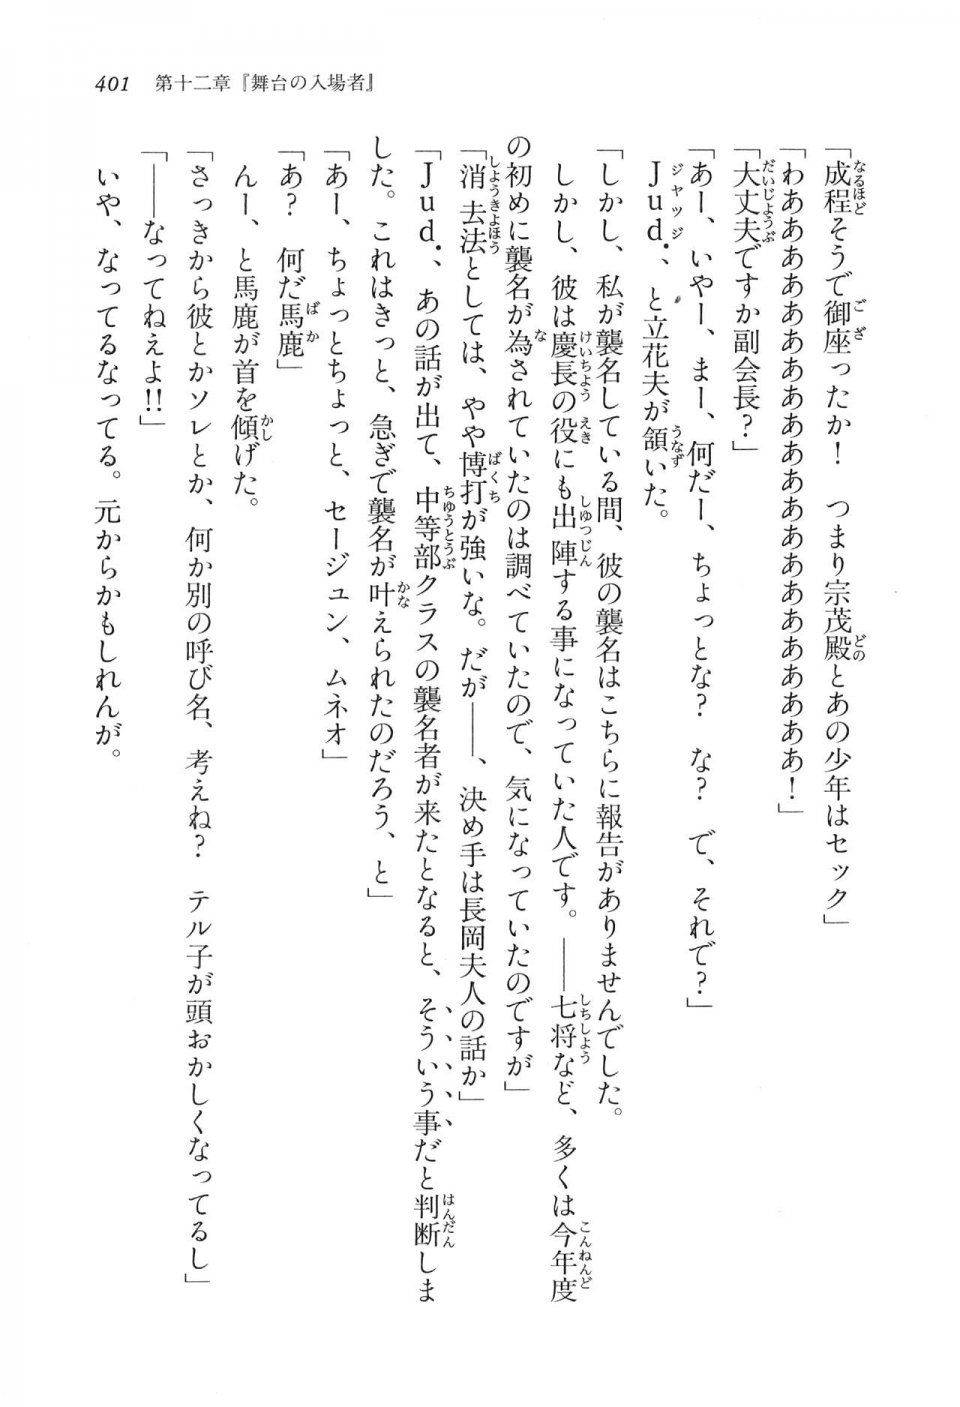 401　第十二章『舞台の入場者』
「成程そうで御座ったか！　つまり宗茂殿とあの少年はセック」
「わあああああああああああああああああああああああ！」
「大丈夫ですか副会長？」
「あー、いやー、まー、何だー、ちょっとな？　な？　で、それで？」
　Jud.、と立花夫が頷いた。
「しかし、私が襲名している間、彼の襲名はこちらに報告がありませんでした。
　しかし、彼は慶長の役にも出陣する事になっていた人です。――七将など、多くは今年度
の初めに襲名が為されていたのは調べていたので、気になっていたのですが」
「消去法としては、やや博打が強いな。だが――、決め手は長岡夫人の話か」
「Jud.、あの話が出て、中等部クラスの襲名者が来たとなると、そういう事だと判断しま
した。これはきっと、急ぎで襲名が叶えられたのだろう、と」
「あー、ちょっとちょっと、セージュン、ムネオ」
「あ？　何だ馬鹿」
　んー、と馬鹿が首を傾げた。
「さっきから彼とかソレとか、何か別の呼び名、考えね？　テル子が頭おかしくなってるし」
「――なってねえよ!!」
　いや、なってるなってる。元からかもしれんが。